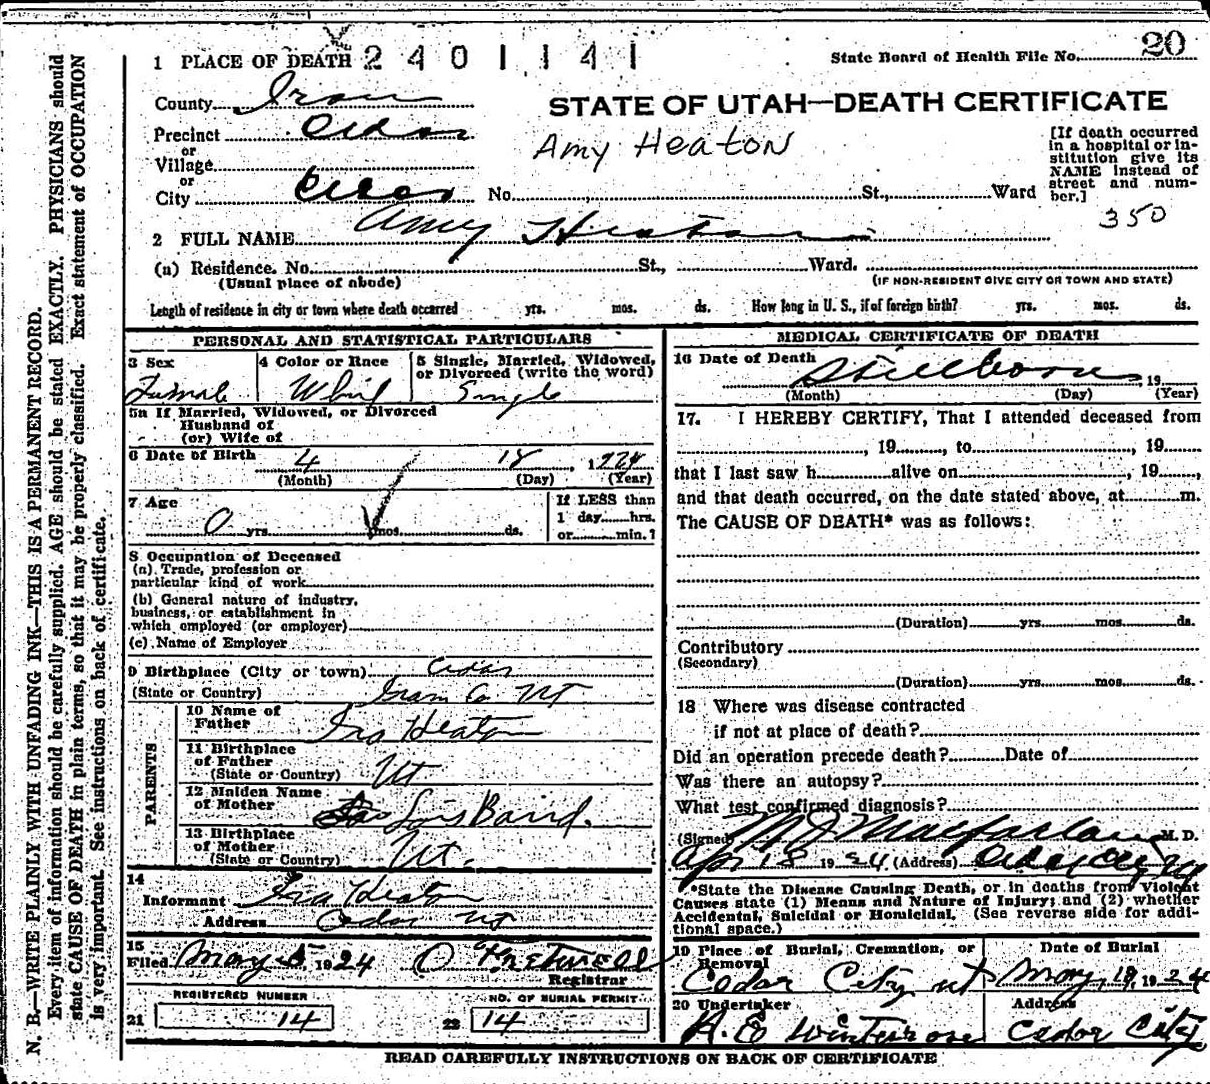 1 PLACE OF DEATH 2 4 0 1 1 4 1
State Board of Health File No. 20
County Iron
STATE OF UTAH—DEATH CERTIFICATE
Precinct Cedar
or
Village
or
City Cedar No. St., Ward
Amy Heaton
[If death occurred
in a hospital or in-
stitution give its
NAME instead of
street and num-
ber.]
350
2 FULL NAME Amy Heaton
(a) Residence. No. St., Ward.
(Usual place of abode) (IF NON-RESIDENT GIVE CITY OR TOWN AND STATE)
Length of residence in city or town where death occurred yrs. mos. ds. How long in U. S., if of foreign birth? yrs. mos. ds.
PERSONAL AND STATISTICAL PARTICULARS
3 Sex 4 Color or Race 5 Single, Married, Widowed,
or Divorced (write the word)
Female White Single
5a If Married, Widowed, or Divorced
Husband of
(or) Wife of
6 Date of Birth 4 18, 1924
(Month) (Day) (Year)
7 Age
0 yrs. mos. ds.
If LESS than
1 day hrs.
or min. ?
8 Occupation of Deceased
(a) Trade, profession or
particular kind of work
(b) General nature of industry,
business, or establishment in
which employed (or employer)
(c) Name of Employer
9 Birthplace (City or town) Cedar
(State or Country) Iron Co UT
PARENTS
10 Name of
Father Ira Heaton
11 Birthplace
of Father
(State or Country) UT
12 Maiden Name
of Mother Lois Baird.
13 Birthplace
of Mother
(State or Country) UT.
14
Informant Ira Heaton
Address Cedar UT
15
Filed May 1924
Registrar
REGISTERED NUMBER NO. OF BURIAL PERMIT
21 14 22 14
MEDICAL CERTIFICATE OF DEATH
16 Date of Death Stillborn 19
(Month) (Day) (Year)
17. I HEREBY CERTIFY, That I attended deceased from
, 19, to, 19
that I last saw h alive on, 19,
and that death occurred, on the date stated above, at m.
The CAUSE OF DEATH* was as follows:
(Duration) yrs. mos. ds.
Contributory
(Secondary)
(Duration) yrs. mos. ds.
18 Where was disease contracted
if not at place of death?
Did an operation precede death? Date of
Was there an autopsy?
What test confirmed diagnosis?
(Signed) M J Macfarlane M. D.
Apr 18 1924 (Address) Cedar City Ut
*State the Disease Causing Death, or in deaths from Violent
Causes state (1) Means and Nature of Injury; and (2) whether
Accidental, Suicidal or Homicidal. (See reverse side for addi-
tional space.)
19 Place of Burial, Cremation, or
Removal
Cedar City Ut
Date of Burial
May, 19, 1924
20 Undertaker Address
Winterrose Cedar City
READ CAREFULLY INSTRUCTIONS ON BACK OF CERTIFICATE
N. B.—WRITE PLAINLY WITH UNFADING INK—THIS IS A PERMANENT RECORD.
Every item of information should be carefully supplied. AGE should be stated EXACTLY. PHYSICIANS should
state CAUSE OF DEATH in plain terms, so that it may be properly classified. Exact statement of OCCUPATION
is very important. See instructions on back of certificate.